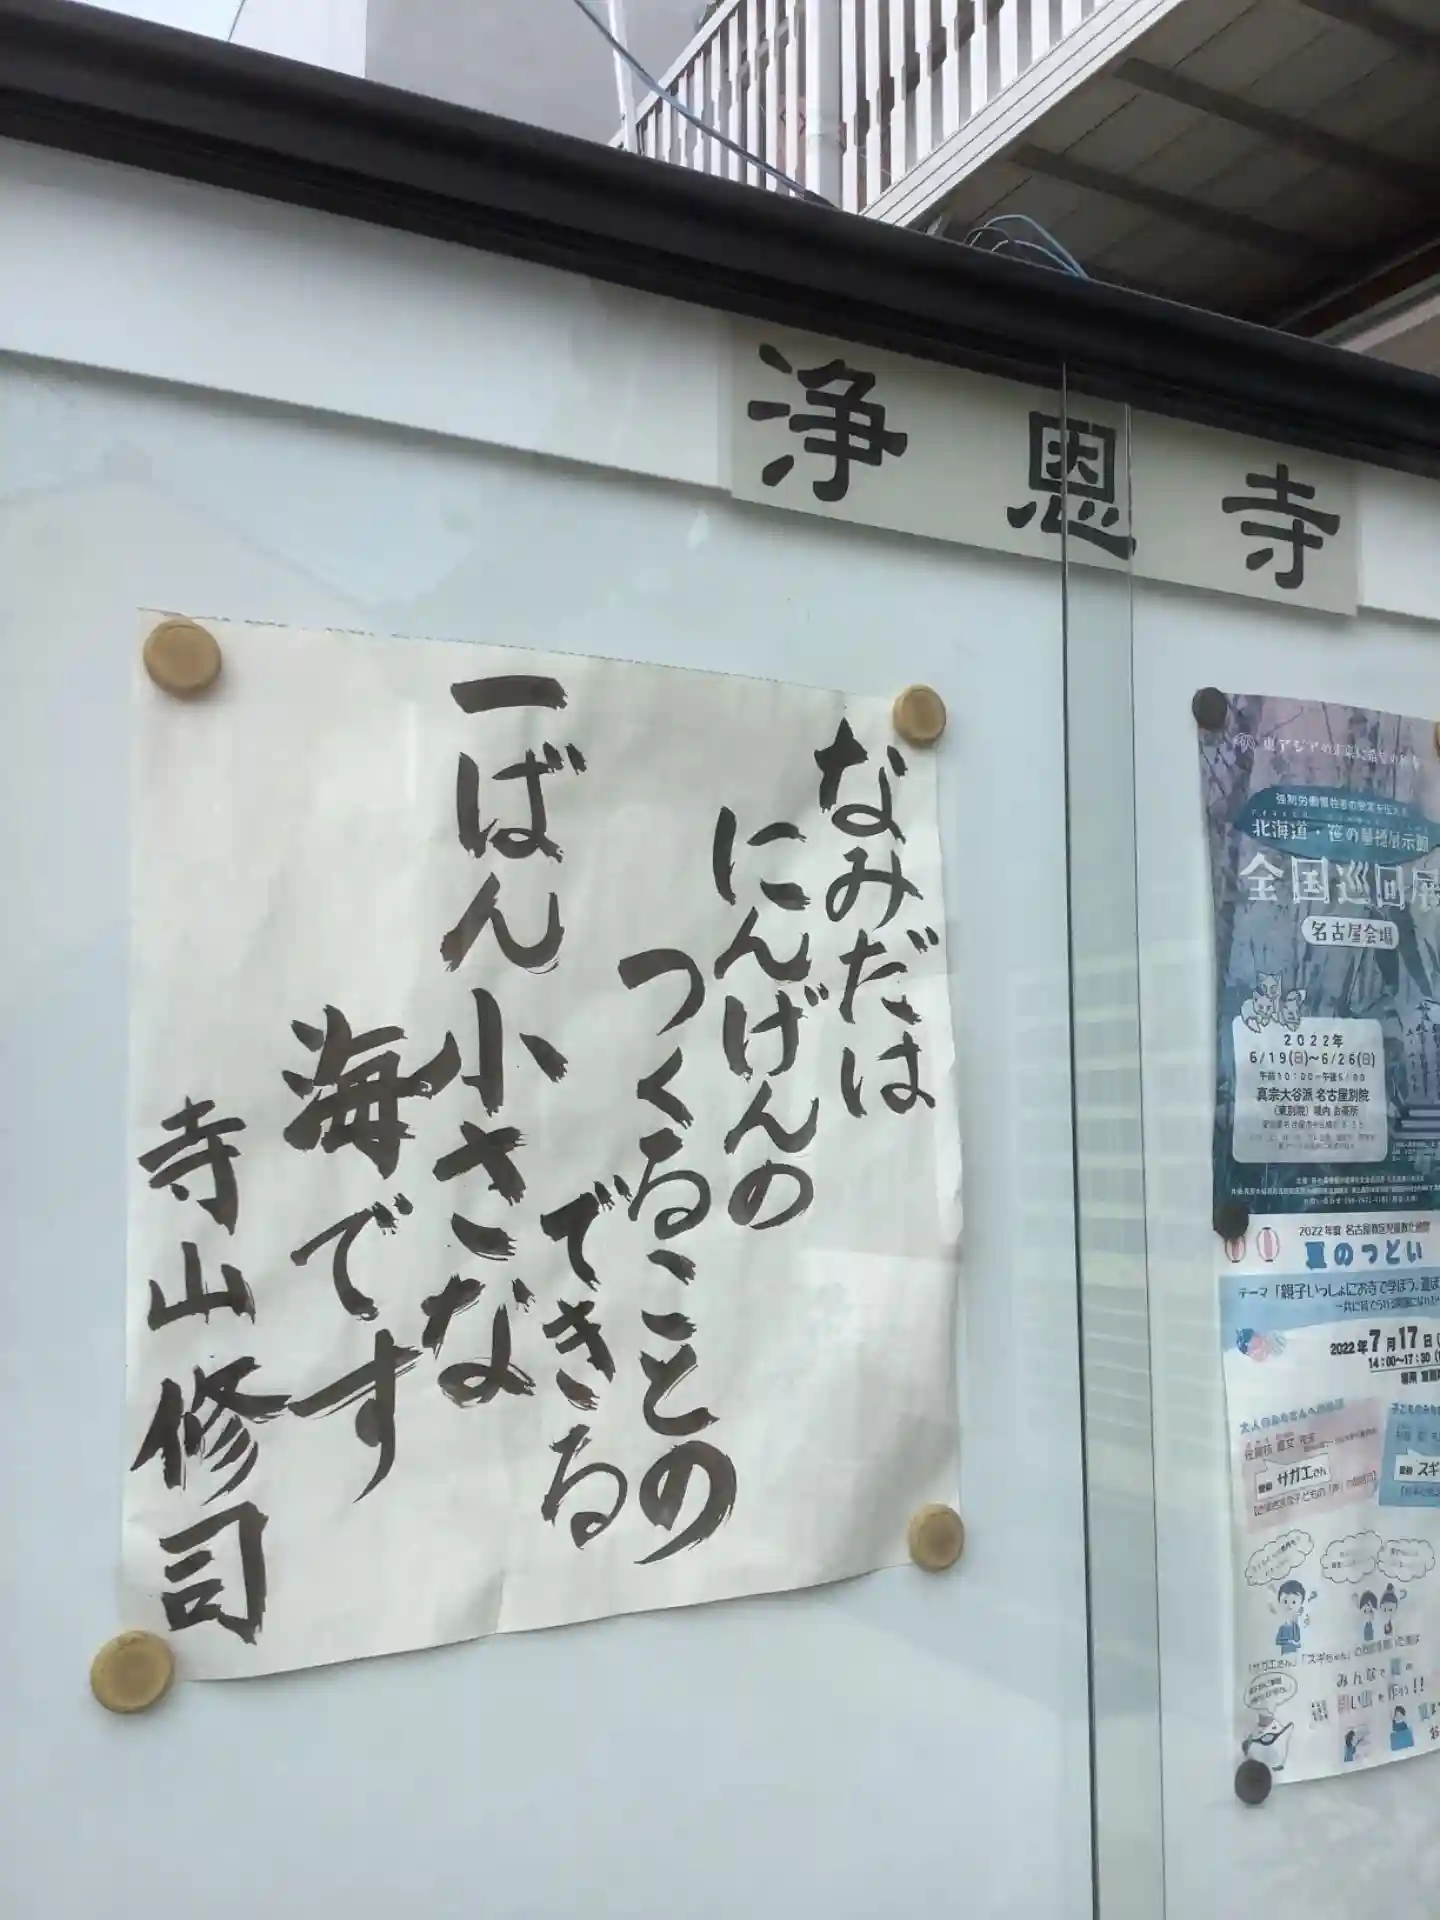 浄恩寺
なみだは
にんげんの
つくることの
できる
一ばん小さな
海です
寺山修司
強制労働犠牲者の
北海道・笹の墓標展示館
全国巡回展
名古屋会場
2022年
6/19(日)~6/26(日)
真宗大谷派 名古屋別院
(東別院) 境内 お茶所
2022年度 名古屋教区児童教化連盟
夏のつどい
テーマ「親子いっしょにお寺で学ぼう、遊ぼ
2022年7月17日
14:00~17:30
大人のみなさんへの
サガエさん
スギ
「サガエさん」「スギちゃん」の
みんなで夏の
思い出を作ろう!!